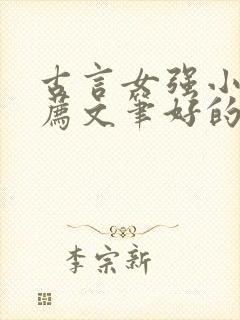 古言女强小
荐文笔好的
李宗新